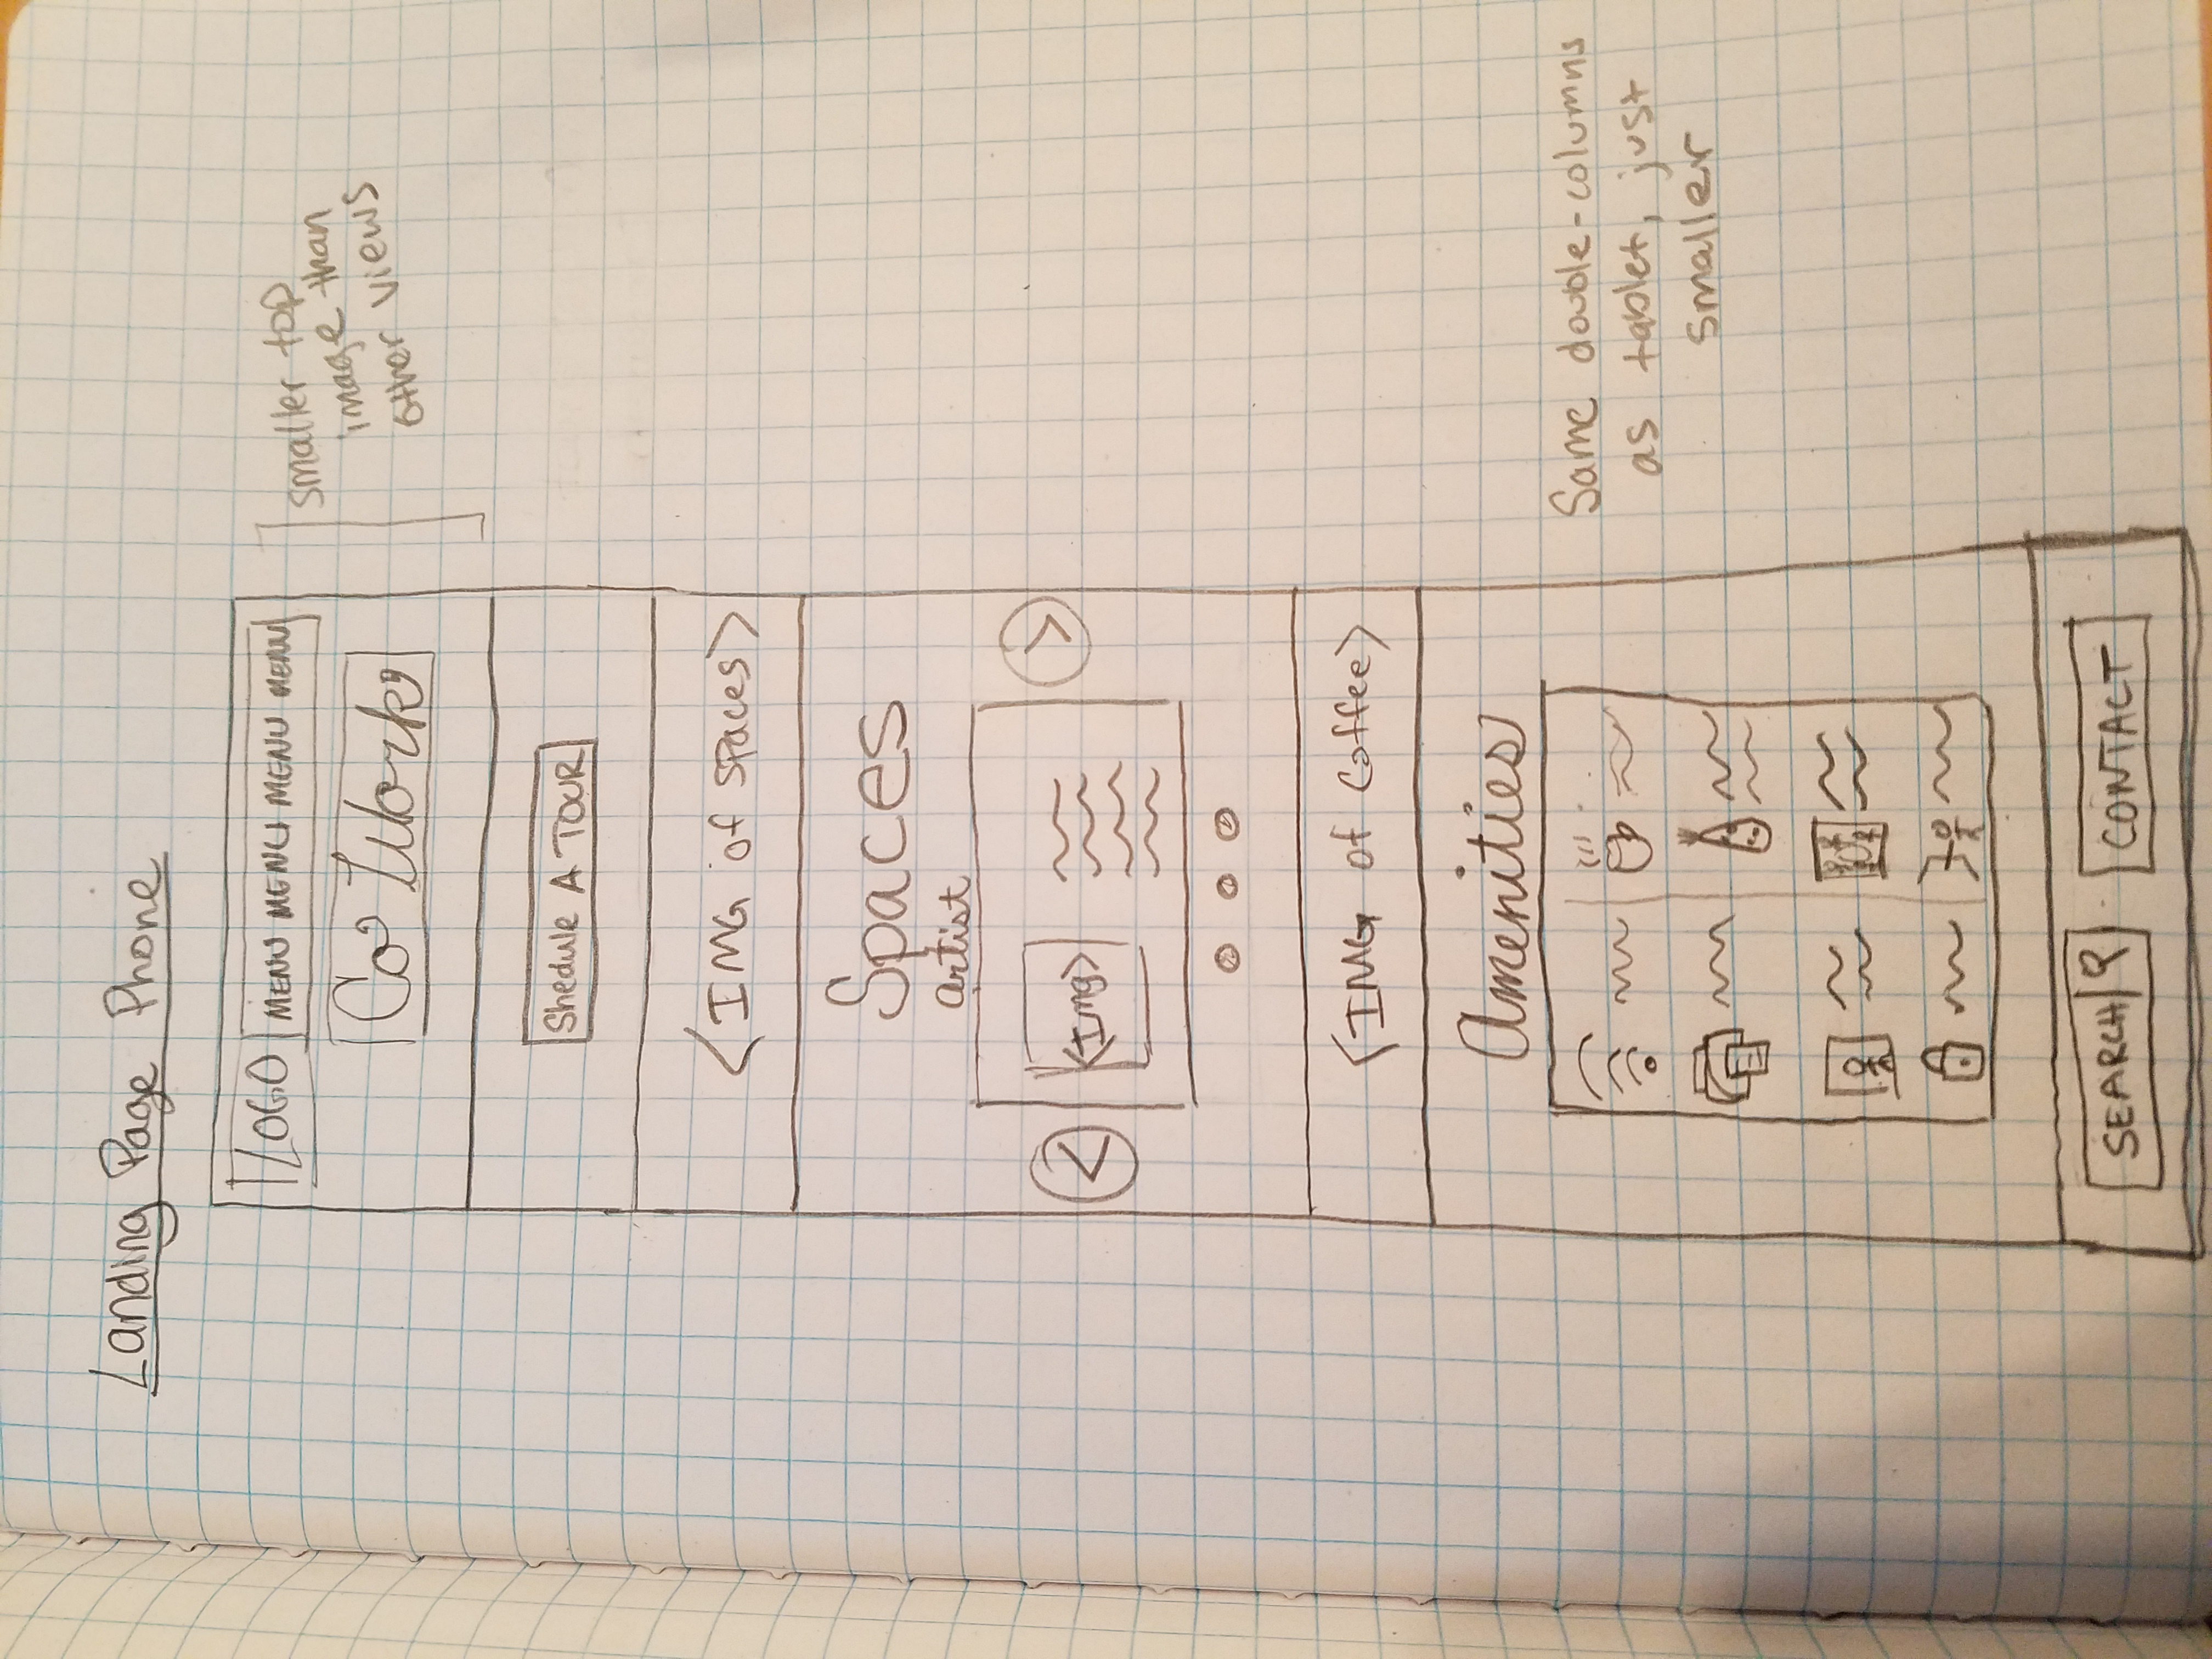 Landing Page Phone
LOGO MENU MENU MENU MENU
Co Work
smaller top
image than
other views
Shedule A TOUR
<IMG of spaces>
Spaces
artist
<
<Img>
>
<IMG of Coffee>
Amenities
Same double-columns
as tablet, just
smaller
SEARCH
CONTACT